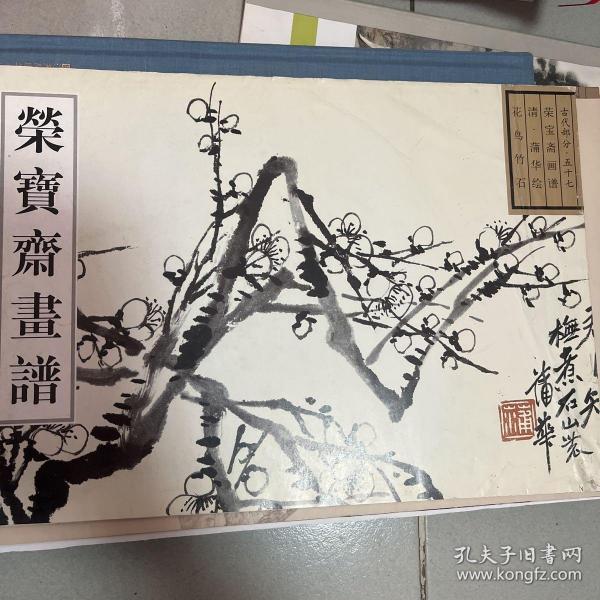 榮寶齋畫譜
古代部分·五十七
荣宝斋画谱
清·蒲华绘
花鸟竹石
橅煮石山农
蒲華
孔夫子旧书网
www.kongfz.com